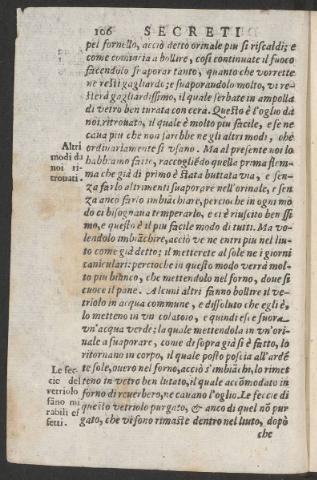 106 SECRETI
pel fornello, acciò detto orinale piu si riscaldi; e
come comincia a bollire, così continuate il fuoco
facendolo suaporar tanto, quanto che vorrette
ne resti gagliardi: se suaporandolo molto, vi re-
sterà gagliardissimo, il quale serbate in ampolla
di vetro ben turata con cera. Questo è l'oglio da
noi ritrouato, il quale è molto piu facile, e se ne
caua piu che non sarebbe negli altri modi, che
ordinariamente si vsano. Ma al presente noi lo
habbiamo fatto, raccogliẽdo quella prima flem-
ma che già di prima è stata buttata via, e sen-
za farlo altrimenti suaporare nell'orinale, e sen
za anco farlo imbiãchiare, percioche in ogni mo
do ci bisognaua temperarlo, e ci è riuscito ben issi
mo, e questo è il piu facile modo di tutti. Ma vo
lendolo imbiãchire, acciò ve ne entri piu nel liu-
to come già detto; il metterete al sole ne i giorni
caniculari: percioche in questo modo verrà mol-
to piu bianco, che mettendolo nel forno, doue si
cuoce il pane. Alcuni altri fanno bollire il ve-
triolo in acqua commune, e dissoluto che egli è,
lo metteno in vn colatoio, e quindi esce fuora
vn'acqua verde; la quale mettendola in vn'ori-
nale a suaporare, come di sopra già si è fatto, lo
ritornano in corpo, il quale posto poscia all'ardẽ
te sole, ouero nel forno, acciò s'imbiãchi, lo rimet
teno in vetro ben lutato, il quale accõmodato in
forno di reuerbero, ne cauano l'oglio. Le feccie di
questo vetriolo purgato, & anco di quel nõ pur
gato, che vi sono rimaste dentro nel liuto, dopò
che
Altri
modi da
noi ri-
trouati.
Le fec-
cie del
vetriolo
fãno mi
rabili ef
fetti.